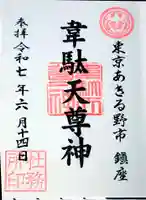 東京あきる野市 鎮座
韋駄天尊神
参拝 令和七年六月十四日
社務所印